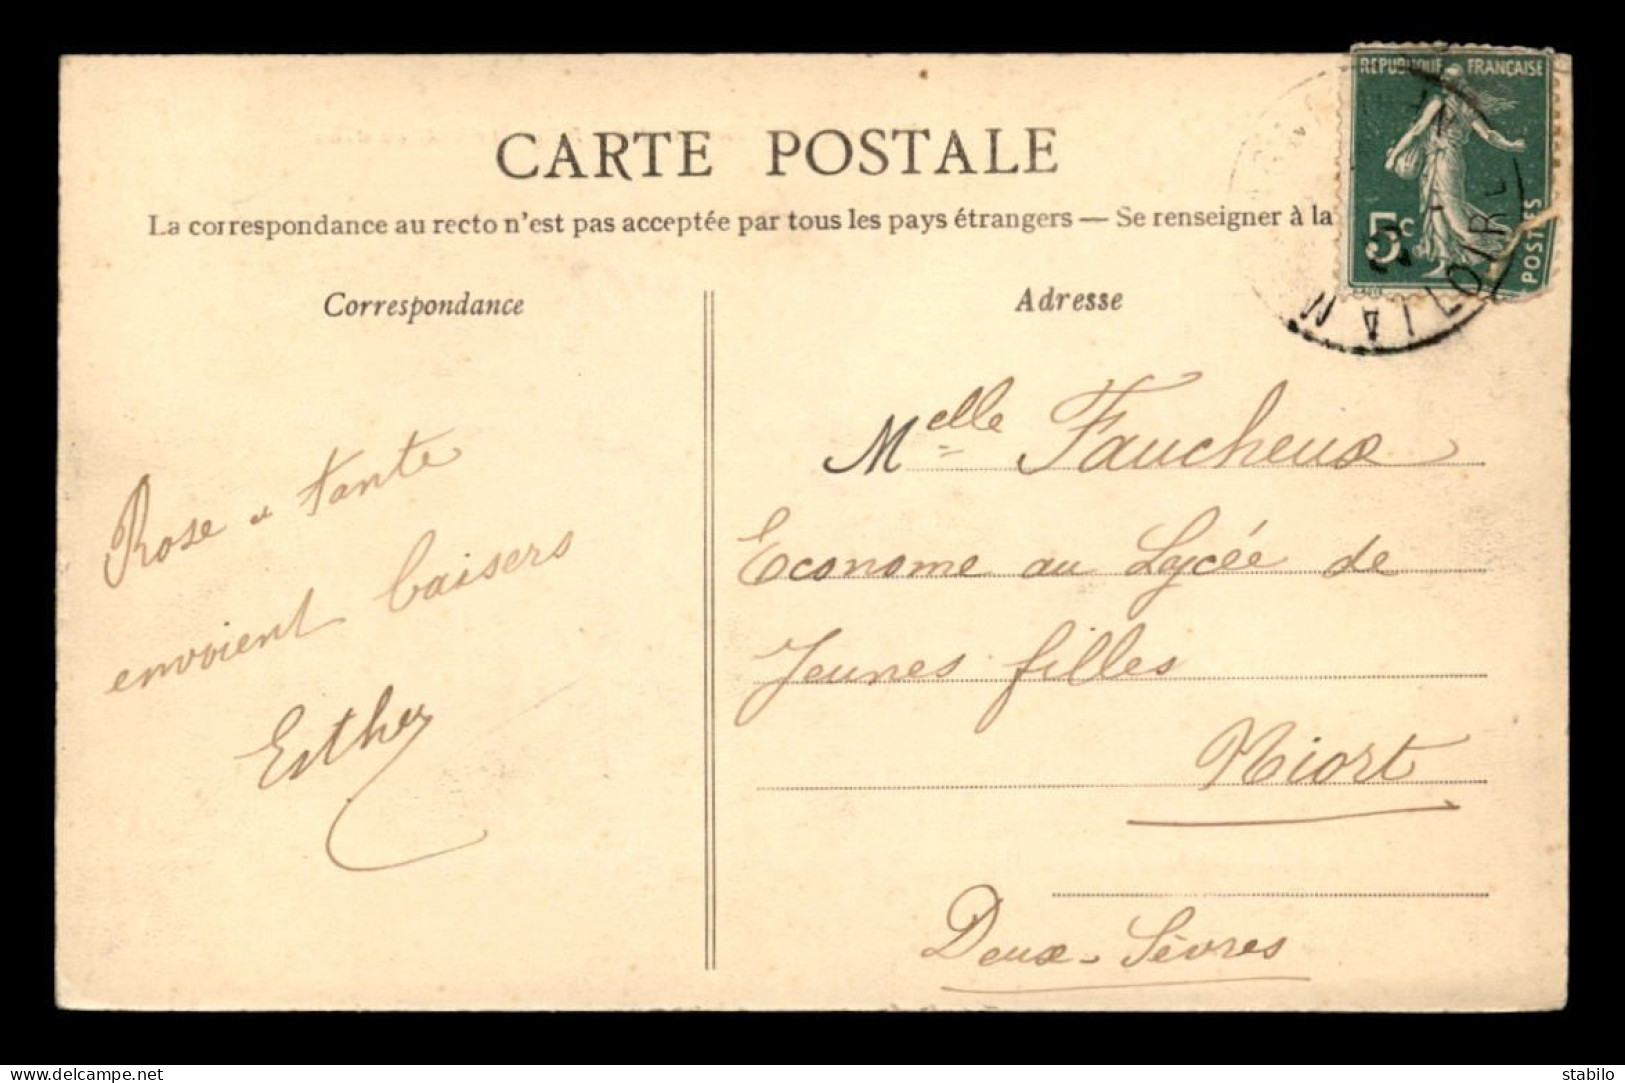 CARTE POSTALE
La correspondance au recto n'est pas acceptée par tous les pays étrangers — Se renseigner à la
Correspondance
Rose et tante
envoient baisers
Esther
Adresse
Melle Faucheux
Econome au Lycée de
Jeunes filles
Niort
Deux-Sèvres
REPUBLIQUE FRANÇAISE
5c
POSTES
delcampe.net
stabilo